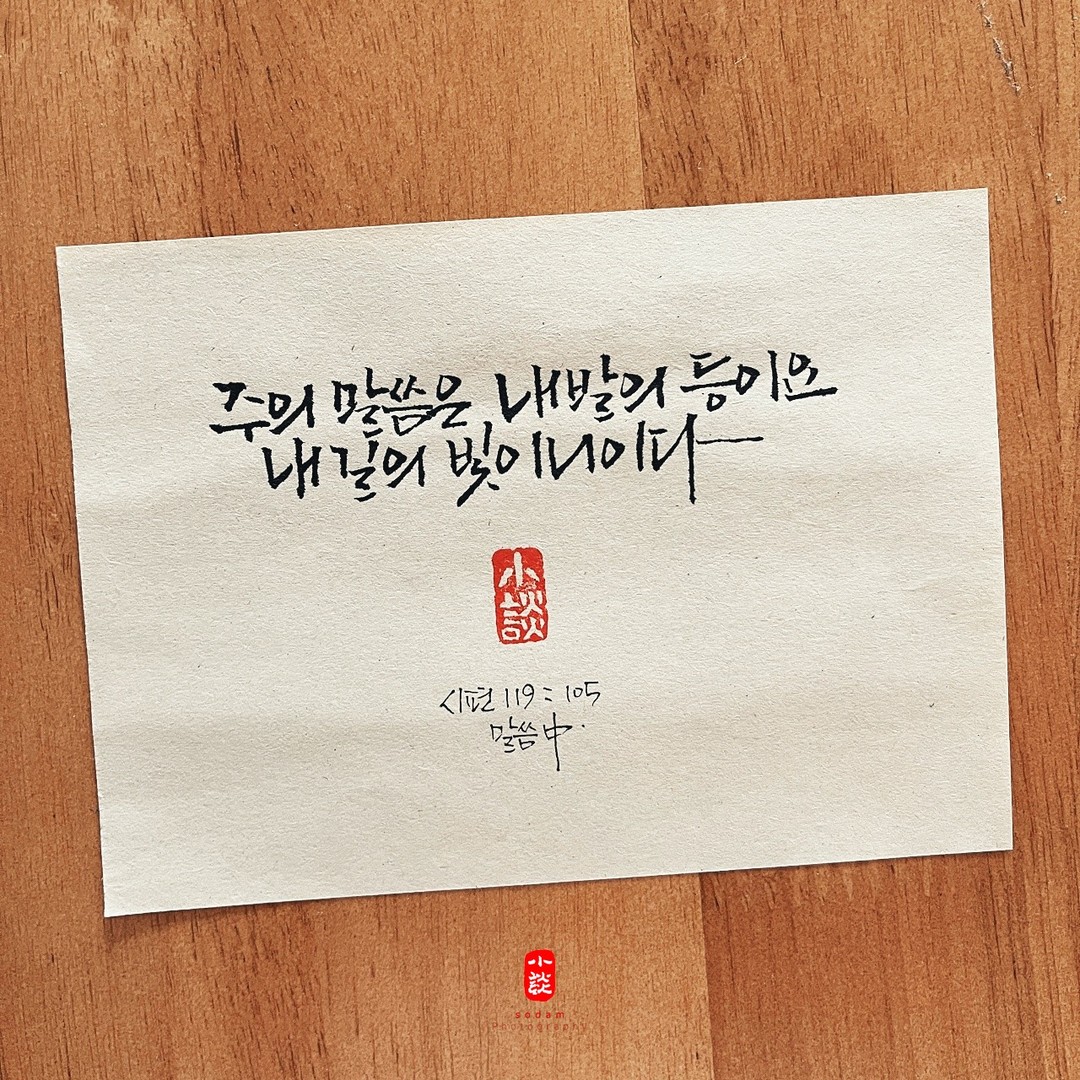 주의 말씀은 내 발의 등이요
내 길의 빛이니이다
小談
시편 119:105
말씀中.
小談
sodam
Photography